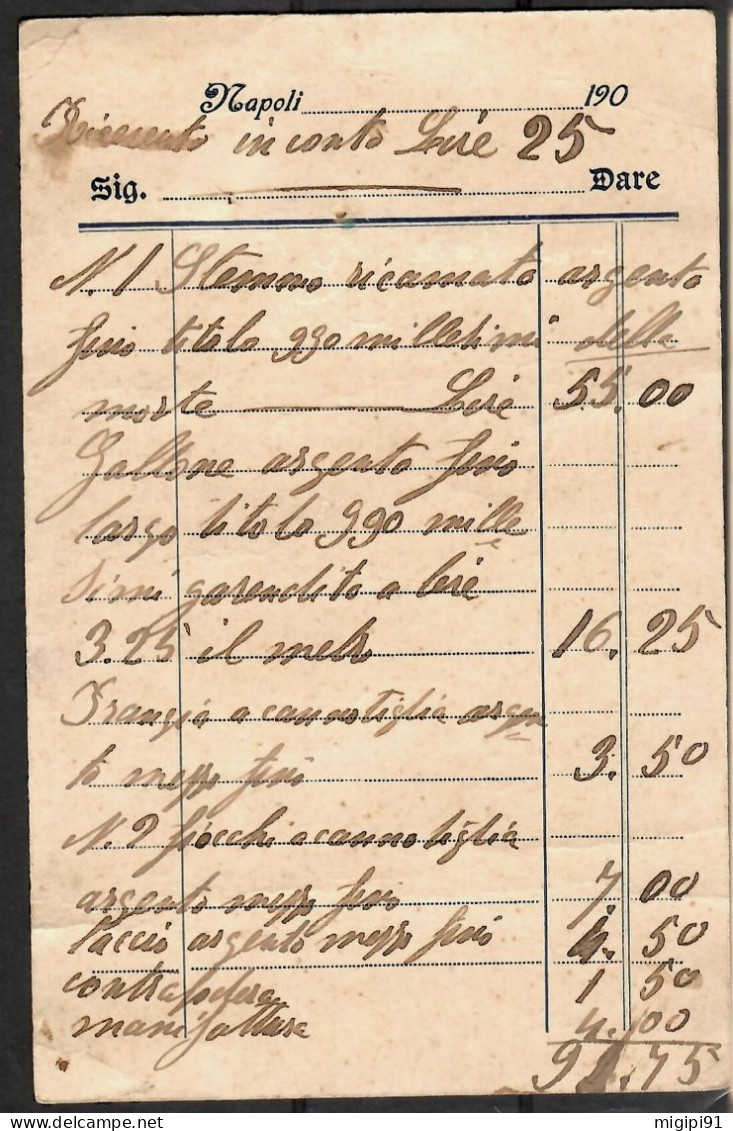 Napoli 190
Ricevuto in conto Lire 25
Sig. Dare
N. 1 Stemma ricamato argento
fino titolo 990 millesimi della
morte Lire 55.00
Gallone argento fino
largo titolo 990 mille
simi garendito a Lire
3.25 il metro 16.25
Frangia a cannotiglia argen
to mezzo fino 3.50
N. 2 fiocchi a cannotiglia
argento mezzo fino 7.00
Laccio argento mezzo fino 4.50
contrafodera 1 50
manifattura 4.00
91.75
migipi91